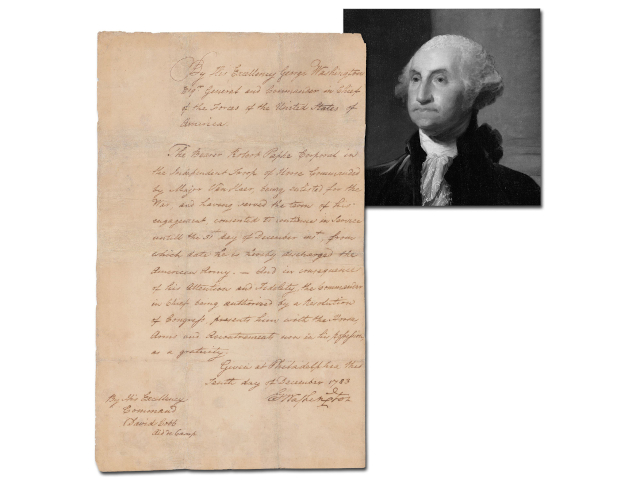 By His Excellency George Washington
Esqr. General and Commander in Chief
of the Forces of the United States of
America.
The Bearer Robert Corporal in
the Independent Troop of Horse Commanded
by Major Van Heer being enlisted for the
War, and having served the term of his
engagement consented to continue in Service
untill the day of December from
which date he is hereby discharged the
American Army. — And in consequence
of his Attention and Fidelity, the Commander
in Chief being authorised by a Resolution
of Congress, presents him with the Horse,
Arms and Accoutrements now in his
as a gratuity
Given at Philadelphia this
Tenth day of December 1783
GWashington
By His Excellency
Command
David Cobb
Aid de Camp